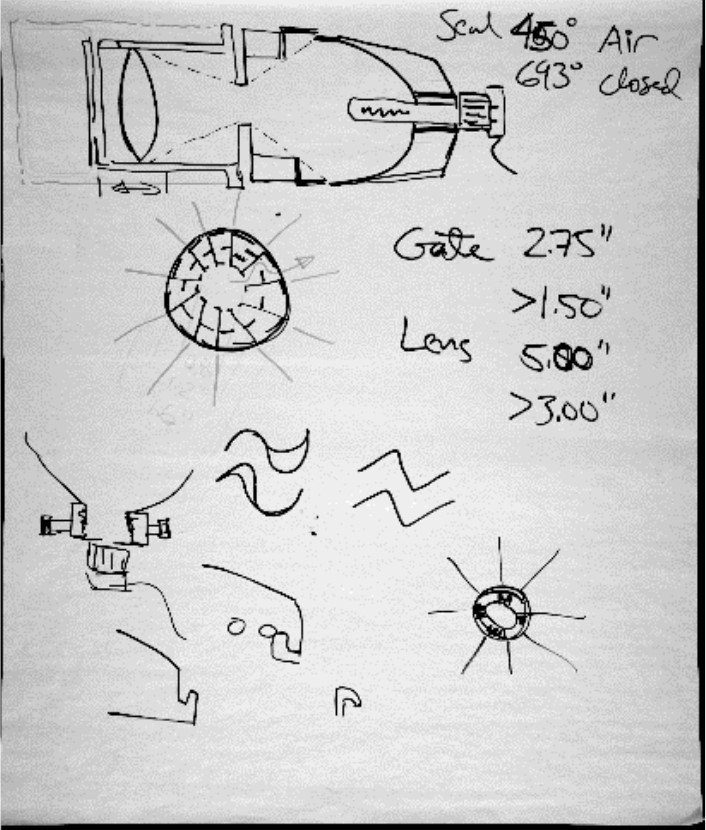 Seal 450° Air
693° closed
Gate 2.75"
>1.50"
Lens 5.00"
>3.00"